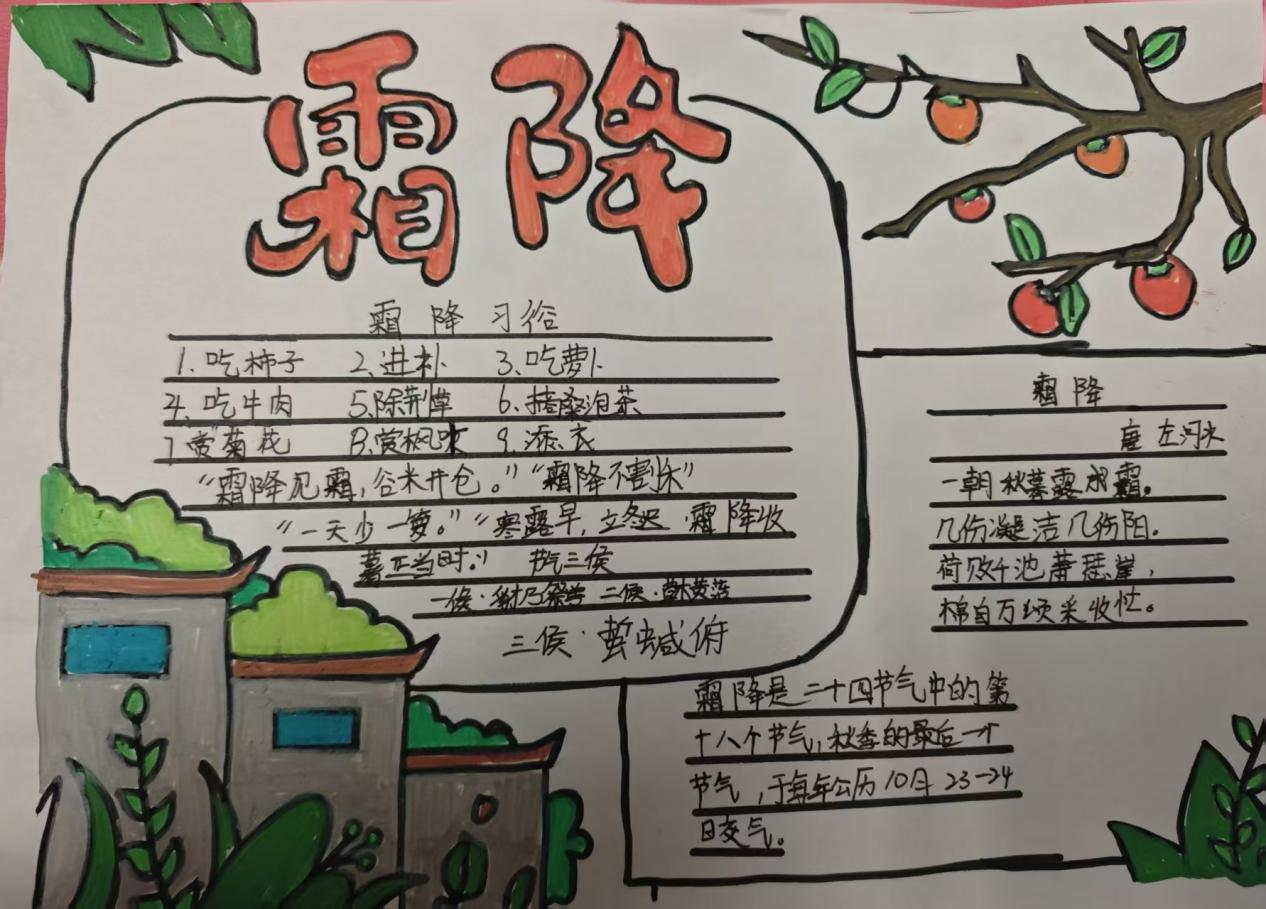 霜降
霜降习俗
1.吃柿子 2.进补 3.吃萝卜
4.吃牛肉 5.除荆草 6.掊桑泡茶
7.赏菊花 8.赏枫叹 9.添衣
“霜降见霜,谷米开仓。”“霜降不割
“一天少一箩。”“寒露早,立冬迟 霜降收
薯正当时。” 节气三侯
一侯·豺乃祭兽 二侯·草木黄落
三侯·蛰蝛俯
霜降
唐 左河水
一朝秋暮露成霜。
几份凝洁几份阳。
荷败千池萧瑟崖,
棉白万顷采收忙。
霜降是二十四节气中的第
十八个节气,秋季的最后一个
节气,于每年公历10月23-24
日交气。